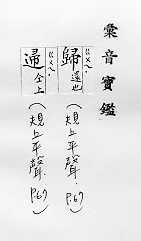 彙音寶鑑
ㄍㄨㄟ
歸 還也
(規上平聲. P.67)
ㄍㄨㄟ
㱕 仝上
(規上平聲. P.67)